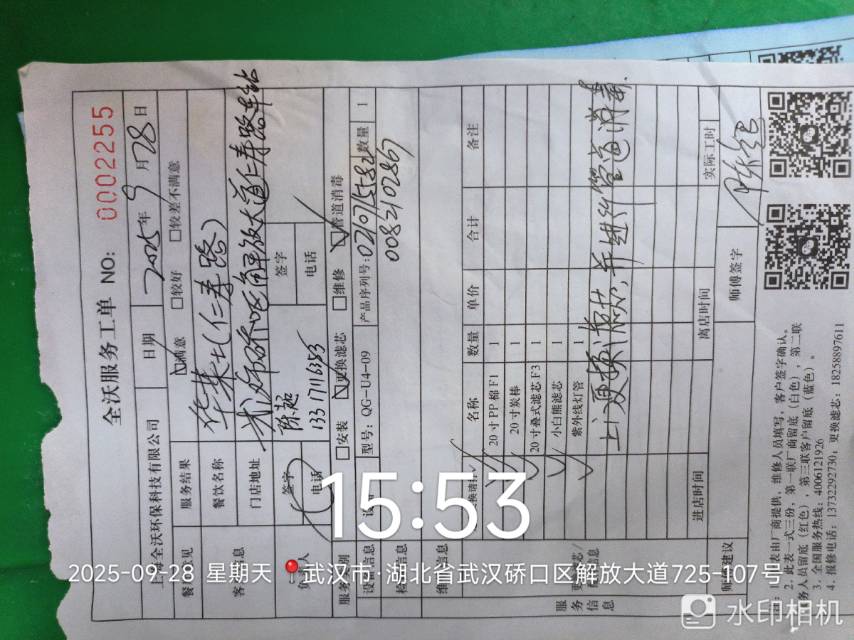 全沃服务工单 NO: 0002255
上海全沃环保科技有限公司 日期 2025年9月28日
服务结果 满意 较好 较差不满意
餐饮名称 华莱士(仁寿路)
门店地址 武汉硚口区解放大道仁寿路车站
签字 陈超 签字
电话 13317116353 电话
安装 更换滤芯 维修 管道消毒
型号: QG-U4-09 产品序列号: 数量 1
0082102867
名称 数量 单价 合计 备注
20寸PP棉F1 1
20寸炭棒 1
20寸叠式滤芯F3 1
小白熊滤芯 1
紫外线灯管 1
上门更换滤芯,并进行管道消毒.
进店时间 离店时间 实际工时
师傅签字
2. 此表一式三份,第一联厂商留底(白色),第二联
服务人员留底(红色),第三联客户留底(蓝色)。
3. 全国服务热线: 4006121926
4. 报修电话: 13732292730; 更换滤芯: 18258897611
15:53
2025-09-28 星期天 武汉市·湖北省武汉硚口区解放大道725-107号
水印相机